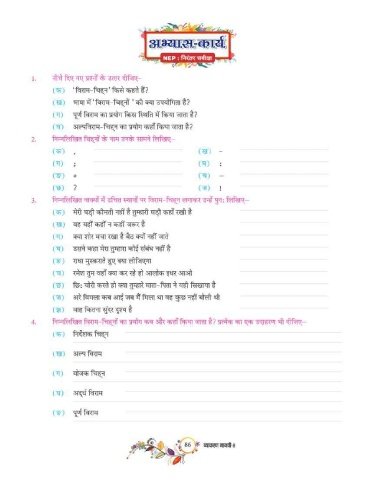 अभ्यास-कार्य
NEP : निरंतर समीक्षा
1. नीचे दिए गए प्रश्नों के उत्तर दीजिए–
(क) 'विराम-चिह्न' किसे कहते हैं?
(ख) भाषा में 'विराम-चिह्नों' की क्या उपयोगिता है?
(ग) पूर्ण विराम का प्रयोग किस स्थिति में किया जाता है?
(घ) अल्पविराम-चिह्न का प्रयोग कहाँ किया जाता है?
2. निम्नलिखित चिह्नों के नाम उनके सामने लिखिए–
(क) , (ख) -
(ग) ; (घ) :
(ङ) (च) –
(छ) ? (ज) !
3. निम्नलिखित वाक्यों में उचित स्थानों पर विराम-चिह्न लगाकर उन्हें पुनः लिखिए–
(क) मेरी घड़ी कीमती नहीं है तुम्हारी घड़ी कहाँ रखी है
(ख) वह यहीं कहीं न कहीं जरूर है
(ग) क्या शोर मचा रखा है बैठ क्यों नहीं जाते
(घ) उसने कहा मेरा तुम्हारा कोई संबंध नहीं है
(ङ) राधा मुस्कराते हुए क्या लीजिएगा
(च) रमेश तुम वहाँ क्या कर रहे हो आलोक इधर आओ
(छ) छिः चोरी करते हो क्या तुम्हारे माता-पिता ने यही सिखाया है
(ज) अरे विमला कब आई जब मैं मिला था वह कुछ नहीं बोली थी
(झ) वाह कितना सुंदर दृश्य है
4. निम्नलिखित विराम-चिह्नों का प्रयोग कब और कहाँ किया जाता है? प्रत्येक का एक उदाहरण भी दीजिए–
(क) निर्देशक चिह्न
(ख) अल्प विराम
(ग) योजक चिह्न
(घ) अर्द्ध विराम
(ङ) पूर्ण विराम
86 व्याकरण वाटिका-8